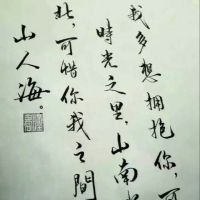 我多想拥抱你，可
時光之里，山南
北，可惜你我之間
山人海。